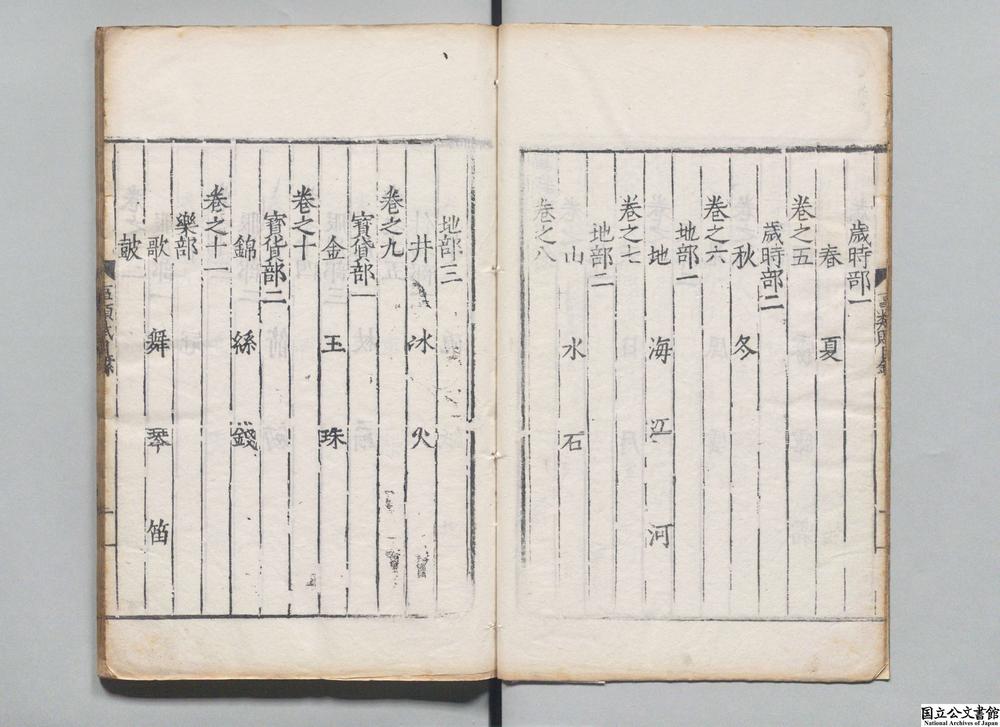 歲時部一
春 夏
卷之五
歲時部二
秋 冬
卷之六
地部一
地 海 江 河
卷之七
地部二
山 水 石
卷之八
地部三
井 冰 火
卷之九
寳貨部一
金 玉 珠
卷之十
寳貨部二
錦 絲 錢
卷之十一
樂部
歌 舞 琴 笛
鼓
国立公文書館
National Archives of Japan